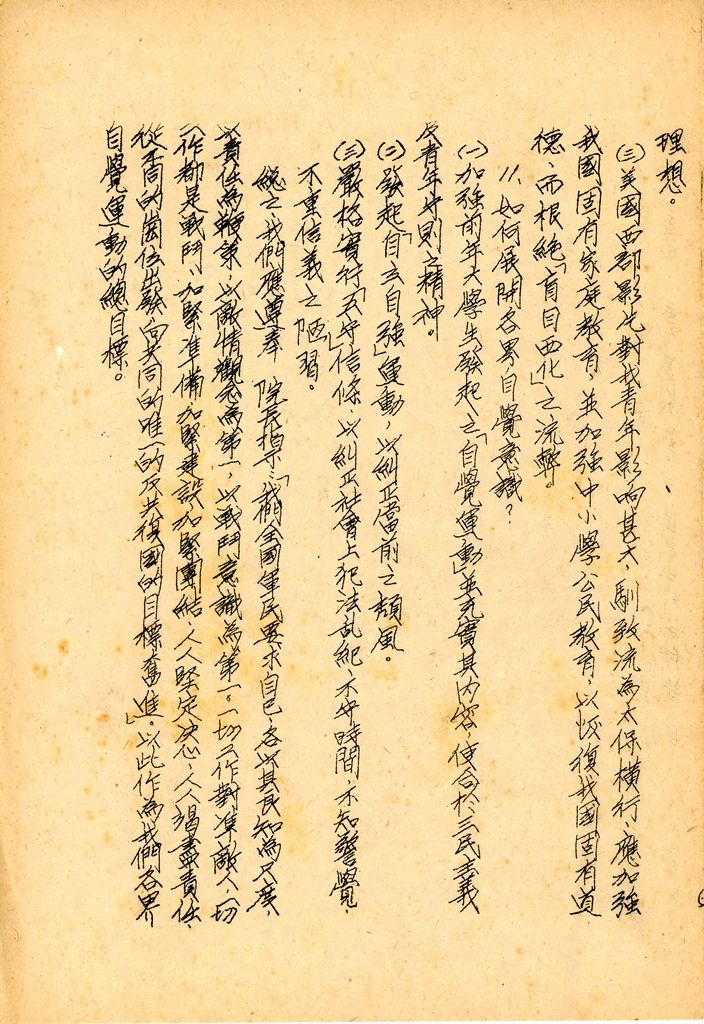 理想。
(三)美國西部影片對我青年影响甚大，馴致流為太保橫行，應加強
我國固有家庭教育，並加強中小學公民教育，以恢復我國固有道
德，而根絕「盲目西化」之流弊。
11、如何展開各界自覺意識？
(一)加強前年大學生發起之「自覺運動」並充實其內容，使合於三民主義
及青年守則之精神。
(二)發起「自立自強」運動，以糾正當前之頹風。
(三)嚴格實行「五守」信條，以糾正社會上犯法乱紀，不守時間，不知警覺，
不重信義之陋習。
總之，我們應遵奉　院長指示：「我們全國軍民要求自己，各以其良知為尺度，
以責任為鞭策，以敵情觀念為第一，以戰鬥意識為第一。一切工作對準敵人，一切
工作都是戰鬥，加緊準備，加緊建設，加緊團結，人人堅定決心，人人竭盡責任，
從不同的崗位出發，向共同的唯一的反共復國的目標奮進」。以此作為我們各界
自覺運動的總目標。